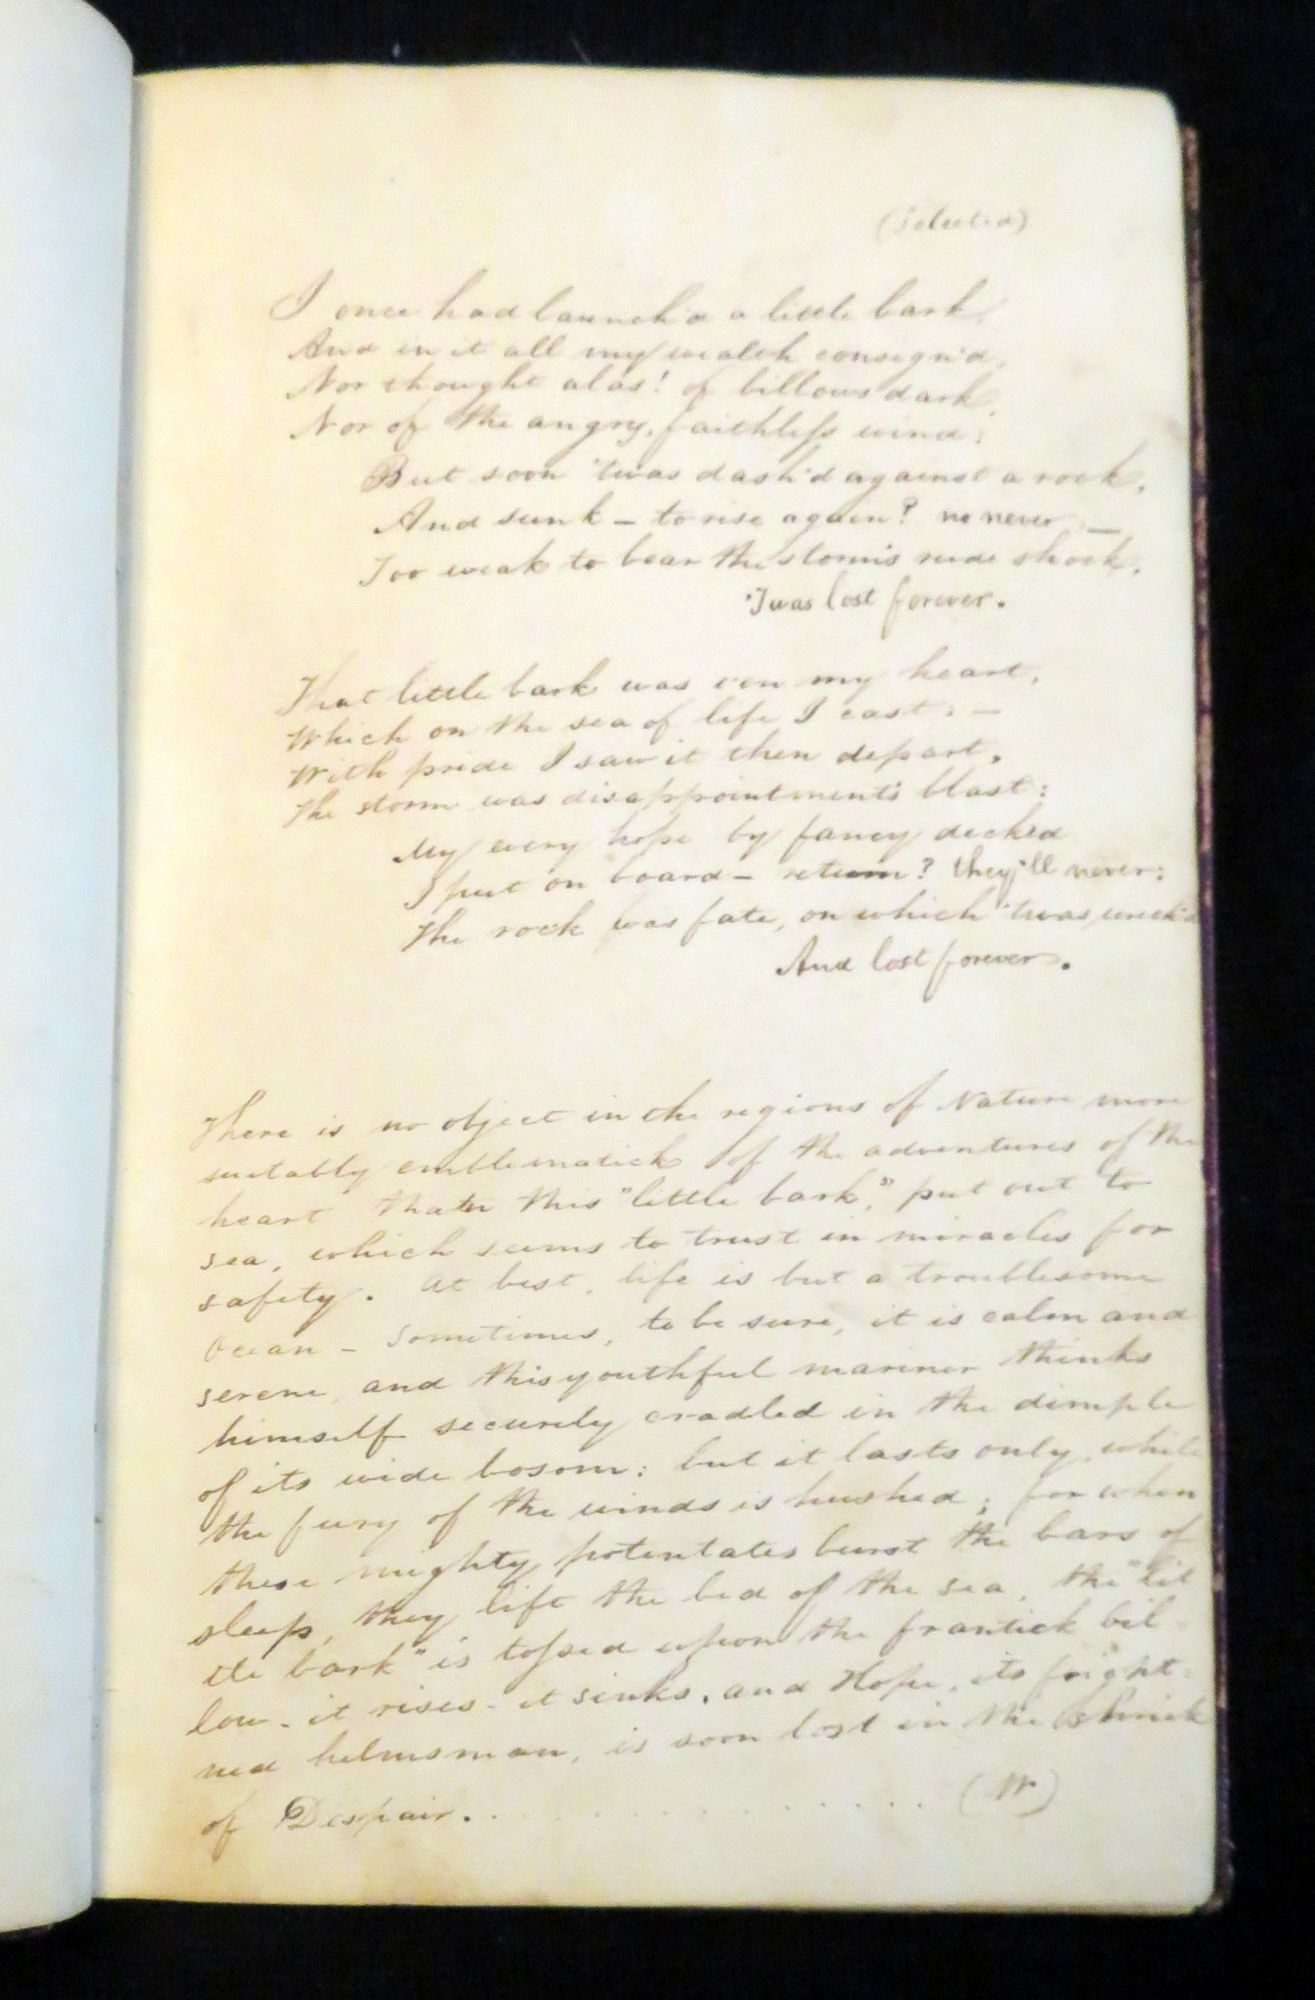 (Selected)
I once had launch'd a little bark
And in it all my wealth consign'd,
Nor thought alas! of billows dark,
Nor of the angry, faithless wind;
But soon 'twas dash'd against a rock,
And sunk – to rise again? no never –
Too weak to bear the storm's rude shock,
'Twas lost forever.
That little bark was e'en my heart,
Which on the sea of life I cast: –
With pride I saw it then depart,
The storm was disappointment's blast:
My every hope by fancy deck'd
I put on board – return? they'll never:
The rock was fate, on which 'twas wreck'd
And lost forever.
There is no object in the regions of Nature more
suitably emblematick of the adventures of the
heart than this "little bark," put out to
sea, which seems to trust in miracles for
safety. At best, life is but a troublesome
Ocean – sometimes, to be sure, it is calm and
serene, and this youthful mariner thinks
himself securely cradled in the dimple
of its wide bosom; but it lasts only, while
the fury of the winds is hushed; for when
these mighty potentates burst the bars of
sleep, they lift the bed of the sea, the "lit
tle bark" is tossed upon the frantick bil
low – it rises – it sinks, and Hope, its fright-
ned helmsman, is soon lost in the shriek
of Despair. . . . . . . . . . . . . . . . (W)